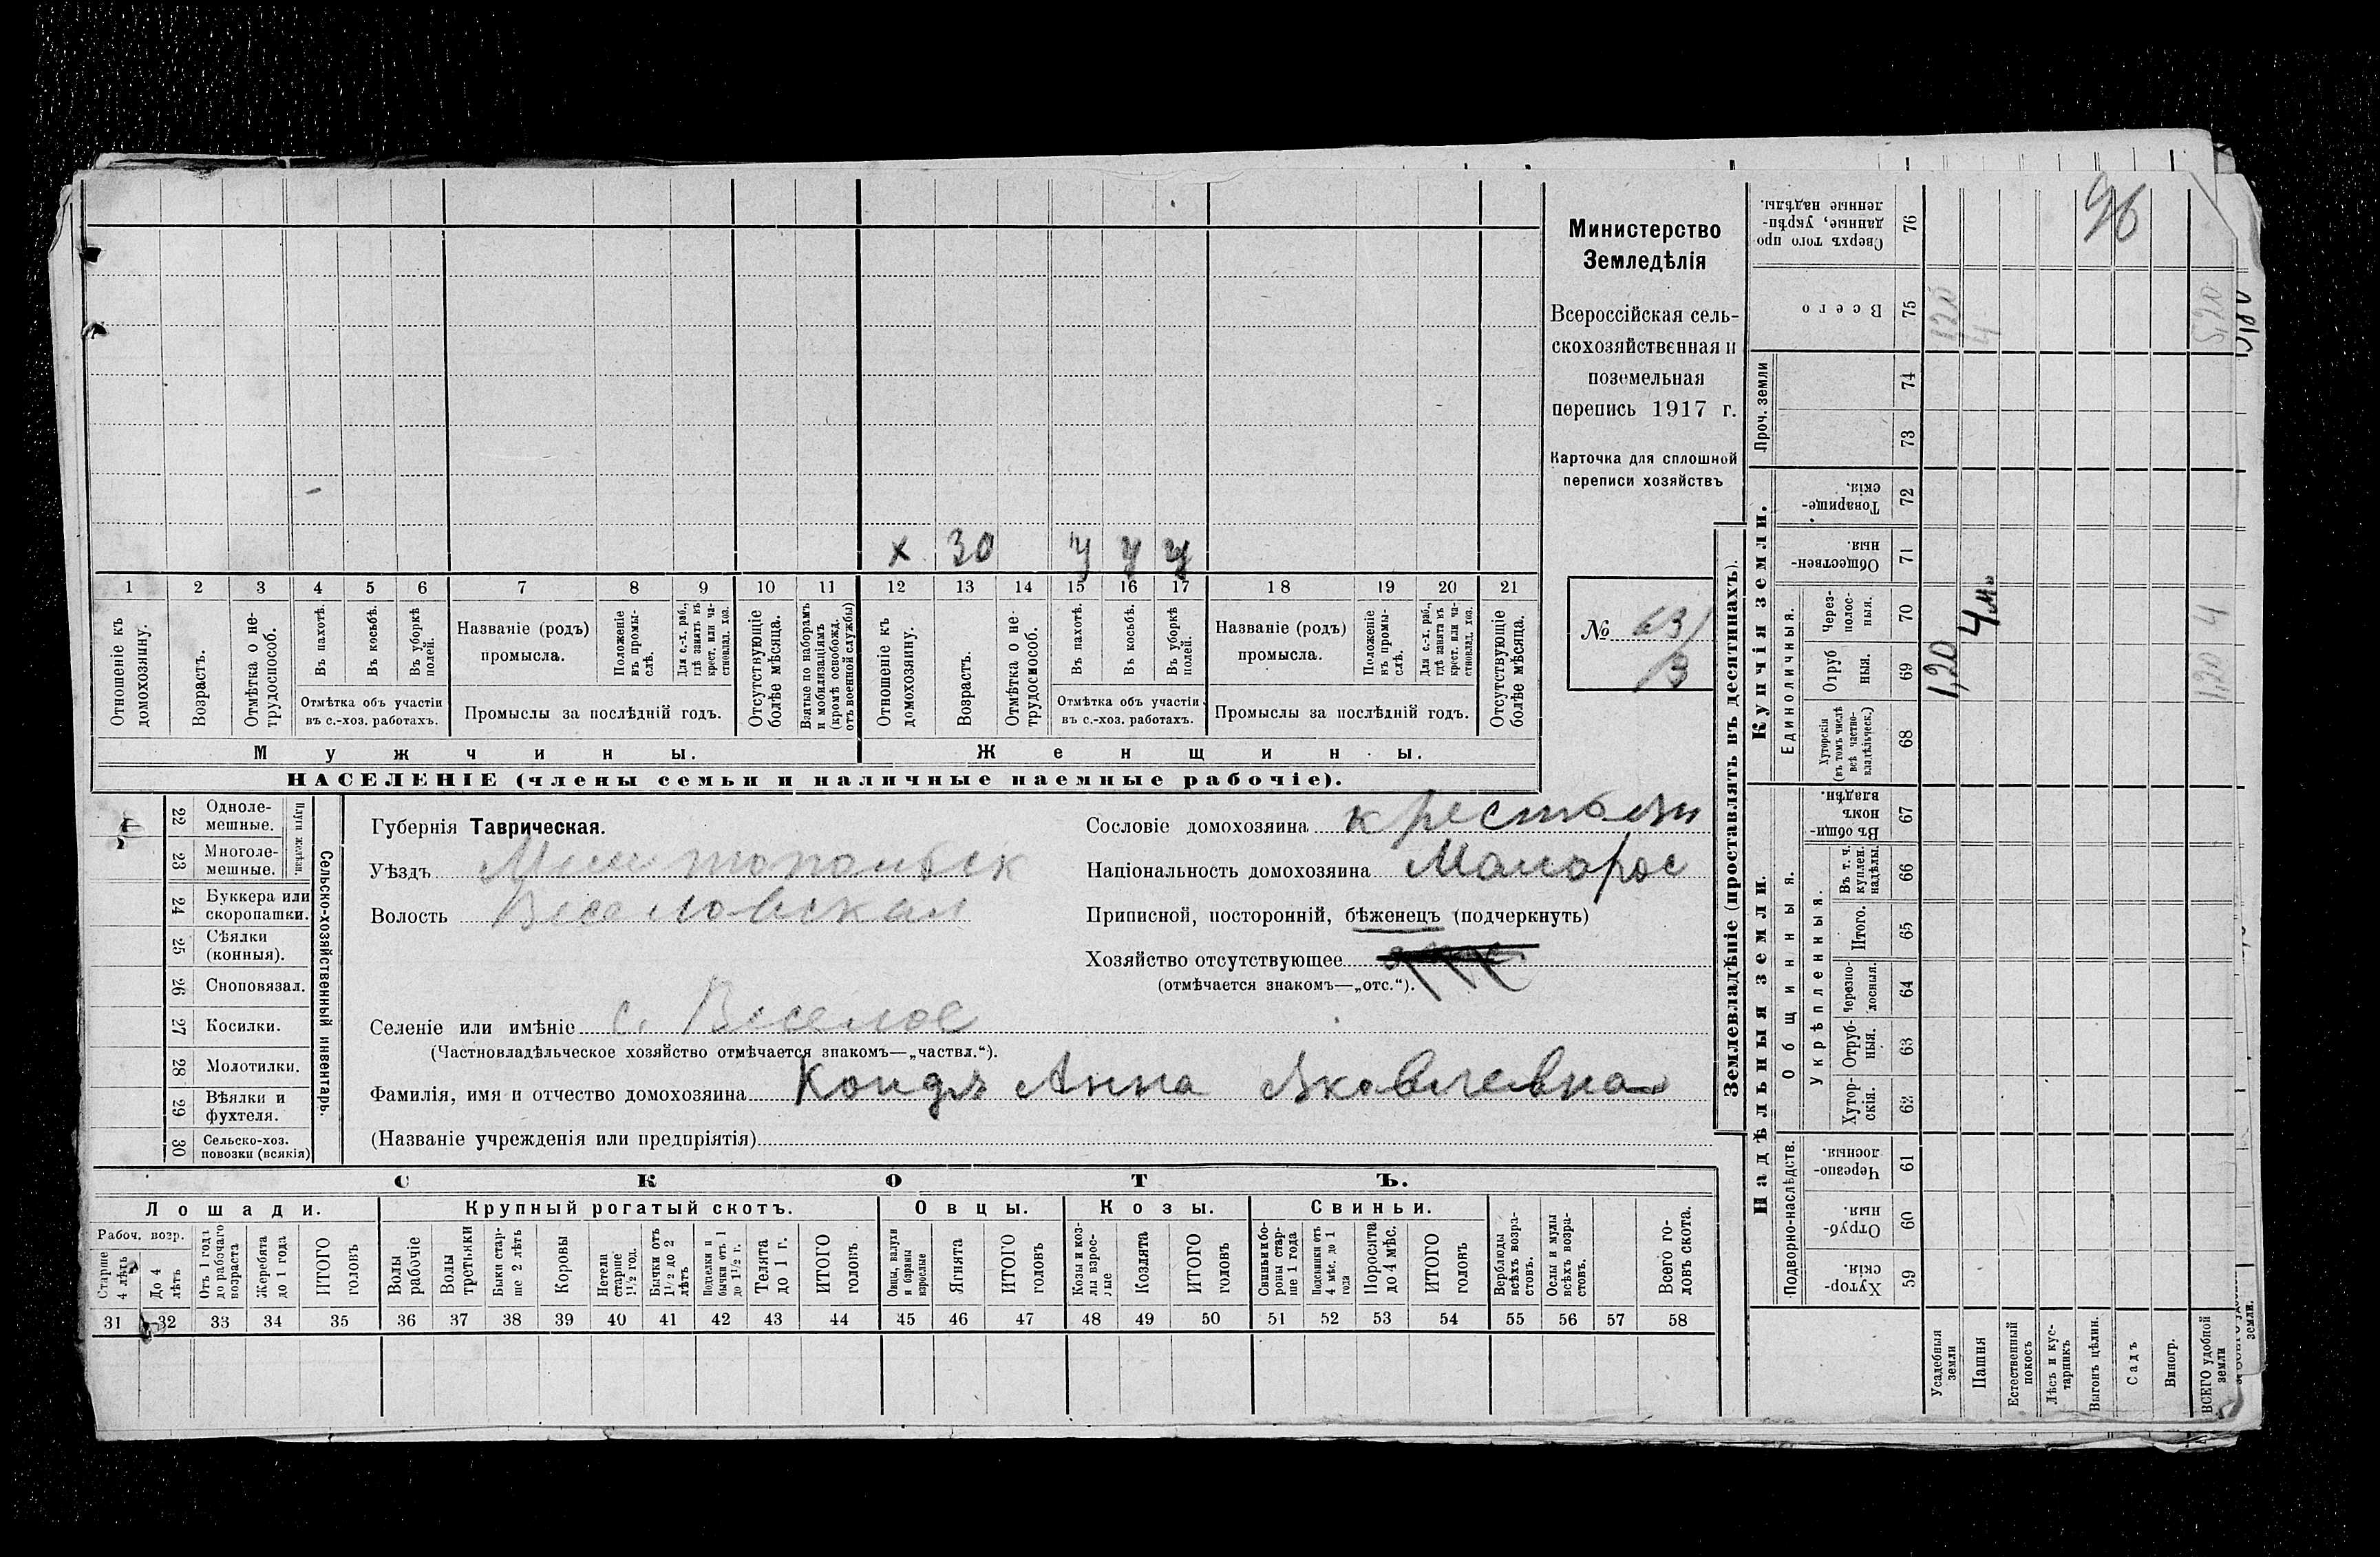 Министерство
Земледѣлія
Всероссійская сель-
скохозяйственная и
поземельная
перепись 1917 г.
Карточка для сплошной
переписи хозяйствъ
№ 63/
13
96
х 30 у у у
1 2 3 4 5 6 7 8 9 10 11 12 13 14 15 16 17 18 19 20 21
Отношеніе къ домохозяину.
Возрастъ.
Отмѣтка о не-трудоспособ.
Въ пахотѣ.
Въ косьбѣ.
Въ уборкѣ полей.
Отмѣтка объ участіи
въ с.-хоз. работахъ.
Названіе (родъ)
промысла.
Положеніе въ промы-слѣ.
Для с.-х. раб., гдѣ занятъ въ крест. или ча-стновлад. хоз.
Промыслы за послѣдній годъ.
Отсутствующіе болѣе мѣсяца.
Взятые по наборамъ и мобилизаціямъ (кромѣ освобожд. отъ военной службы)
Отношеніе къ домохозяину.
Возрастъ.
Отмѣтка о не-трудоспособ.
Въ пахотѣ.
Въ косьбѣ.
Въ уборкѣ полей.
Отмѣтка объ участіи
въ с.-хоз. работахъ.
Названіе (родъ)
промысла.
Положеніе въ промы-слѣ.
Для с.-х. раб., гдѣ занята въ крест. или ча-стновлад. хоз.
Промыслы за послѣдній годъ.
Отсутствующіе болѣе мѣсяца.
Мужчины.
Женщины.
НАСЕЛЕНІЕ (члены семьи и наличные наемные рабочіе).
Сельско-хозяйственный инвентарь.
Плуги желѣзн.
22 Одноле-мешные.
23 Многоле-мешные.
24 Буккера или скоропашки.
25 Сѣялки (конныя).
26 Сноповязал.
27 Косилки.
28 Молотилки.
29 Вѣялки и фухтеля.
30 Сельско-хоз. повозки (всякія)
Губернія Таврическая.
Уѣздъ Мелитопольск
Волость Веселовская
Селеніе или имѣніе с. Веселое
(Частновладѣльческое хозяйство отмѣчается знакомъ—„частвл.“).
Фамилія, имя и отчество домохозяина Кондр Анна Яковлевна
(Названіе учрежденія или предпріятія)
Сословіе домохозяина крестьян
Національность домохозяина Малорос
Приписной, посторонній, бѣженецъ (подчеркнуть)
Хозяйство отсутствующее
(отмѣчается знакомъ—„отс.“).
СКОТЪ.
Лошади.
Крупный рогатый скотъ.
Овцы.
Козы.
Свиньи.
Рабоч. возр.
Старше 4 лѣтъ
До 4 лѣтъ
Отъ 1 года до рабочаго возраста
Жеребята до 1 года
ИТОГО головъ
Волы рабочіе
Волы третьяки
Быки стар-ше 2 лѣтъ
Коровы
Нетели старше 1½ год.
Бычки отъ 1½ до 2 лѣтъ
Подтелки и бычки отъ 1 до 1½ г.
Телята до 1 г.
ИТОГО головъ
Овцы, валухи и бараны взрослые
Ягнята
ИТОГО головъ
Козы и коз-лы взрос-лые
Козлята
ИТОГО головъ
Свиньи и бо-ровы стар-ше 1 года
Подсвинки отъ 4 мѣс. до 1 года
Поросята до 4 мѣс.
ИТОГО головъ
Верблюды всѣхъ возра-стовъ.
Ослы и мулы всѣхъ возра-стовъ.
Всего го-ловъ скота.
31 32 33 34 35 36 37 38 39 40 41 42 43 44 45 46 47 48 49 50 51 52 53 54 55 56 57 58
Землевладѣніе (проставлять въ десятинахъ).
Надѣльныя земли.
Купчія земли.
Проч. земли
Подворно-наслѣдств.
Общинныя.
Укрѣпленныя.
Единоличныя.
59 Хутор-скія.
60 Отруб-ныя.
61 Черезпо-лосныя.
62 Хутор-скія.
63 Отруб-ныя.
64 Черезпо-лосныя.
65 Итого.
66 Въ т. ч. куплен. надѣлы.
67 Въ общи-номъ владѣн.
68 Хуторскія (въ томъ числѣ всѣ частно-владѣльческ.)
69 Отруб ныя.
70 Через-полос-ныя.
71 Обществен-ныя.
72 Товарище-скія.
73
74
75 Всего
76 Сверхъ того про данные, укрѣп-ленные надѣлы.
Усадебныя земли
Пашня
Естественный покосъ
Лѣсъ и кус-тарникъ
Выгонъ цѣлин.
Садъ
Виногр.
ВСЕГО удобной земли
1,20
4
120
4
1,20 4
5,20